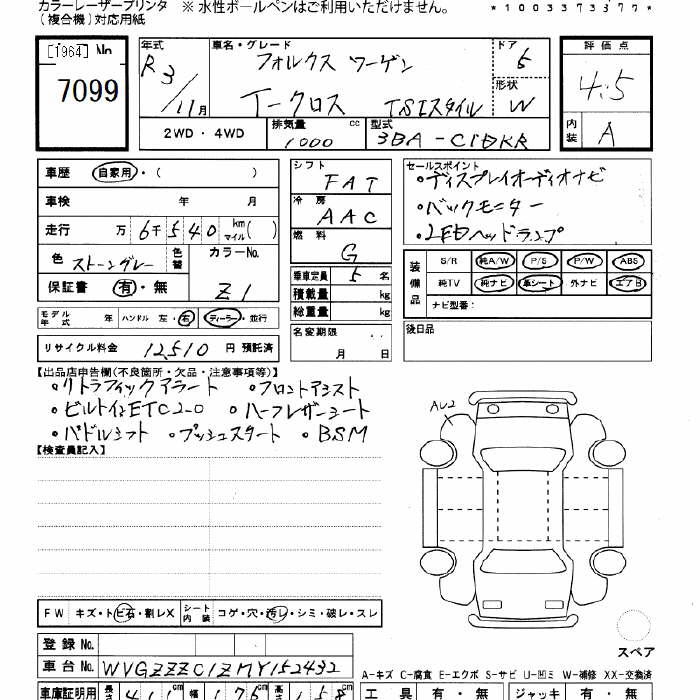 カラーレーザープリンタ ※ 水性ボールペンはご利用いただけません。
(複合機)対応用紙
*1003373377*
[1964] No
7099
年式 R3/11月
車名・グレード フォルクスワーゲン
Tークロス TSIスタイル
ドア 5
形状 W
評価点 4.5
内装 A
2WD・4WD
排気量 1000 cc
型式 3BA-C1DKR
車歴 自家用・( )
車検 年 月
走行 万 6千540 km マイル( )
色 ストーングレー 色替 カラーNo. Z1
保証書 有・無
モデル年式 年 ハンドル 左・右 ディーラー・並行
リサイクル料金 12510 円 預託済
シフト FAT
冷房 AAC
燃料 G
乗車定員 5 名
積載量 kg
総重量 kg
名変期限 . .
月 日
セールスポイント
・ディスプレイオーディオナビ
・バックモニター
・LEDヘッドランプ
装備品 S/R 純A/W P/S P/W ABS
純TV 純ナビ 革シート 外ナビ エアB
ナビ型番:
後日品
【出品店申告欄(不良箇所・欠品・注意事項等)】
・リトラフィックアラート ・フロントアシスト
・ビルトインETC2.0 ・ハーフレザーシート
・パドルシフト ・プッシュスタート ・BSM
【検査員記入】
AU2
FW キズ・トビ石・割レX シート内装 コゲ・穴・汚レ・シミ・破レ・スレ
スペア
登録No.
車台No. WVGZZZC1ZMY152432
A-キズ C-腐食 E-エクボ S-サビ U-凹ミ W-補修 XX-交換済
車庫証明用 長さ 411cm 幅 176cm 高さ 158cm
工具 有・無 ジャッキ 有・無